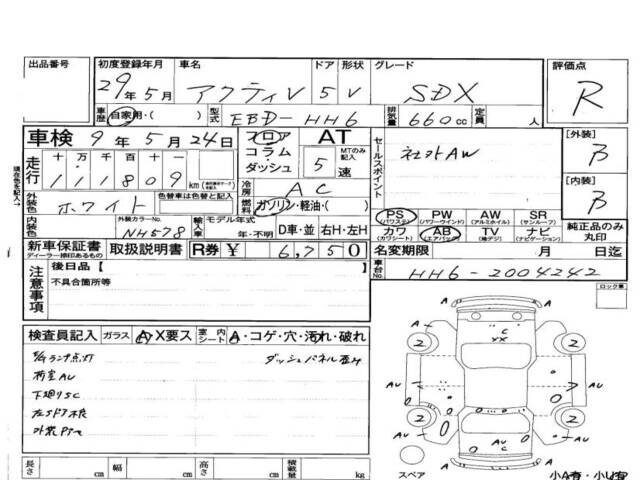 出品番号
初度登録年月 車名 ドア 形状 グレード 評価点
29年5月 アクティV 5 V SDX R
車歴 自家用・( ) 型式 EBD-HH6 排気量 660cc 定員 人
車検 9年5月24日 フロア AT
コラム・ MTのみ記入
ダッシュ 5 速
走行 十 万 千 百 十 一
111809 km
セールスポイント 社外AW
[外装] B
[内装] B
冷房 AC
外装色 ホワイト 色替車は色替と記入
燃料 ガソリン・軽油・( )
内装色 外装カラーNo. NH578 輸入車 モデル年式 年・不明 D車・並 右H・左H
PS (パワステ) PW (パワーウインド) AW (アルミホイル) SR (サンルーフ)
カワ (カワシート) AB (エアバッグ) TV (地デジ) ナビ (ナビゲーション)
純正品のみ丸印
新車保証書 ディーラー捺印あるもの 取扱説明書 R券 ¥ 6,750
名変期限 月 日迄
車台No. HH6-2004242
注意事項
後日品[ ]
不具合箇所等
ロック車
検査員記入 ガラス A・X要ス 室内シート A・コゲ・穴・汚れ・破れ
ダッシュパネル歪み
荷室AU
下廻りSC
A A C XX 2 2 AU AU 2 2 AU C AU A
スペア
小A有・小U有
長さ cm 幅 cm 高さ cm 積載量 kg